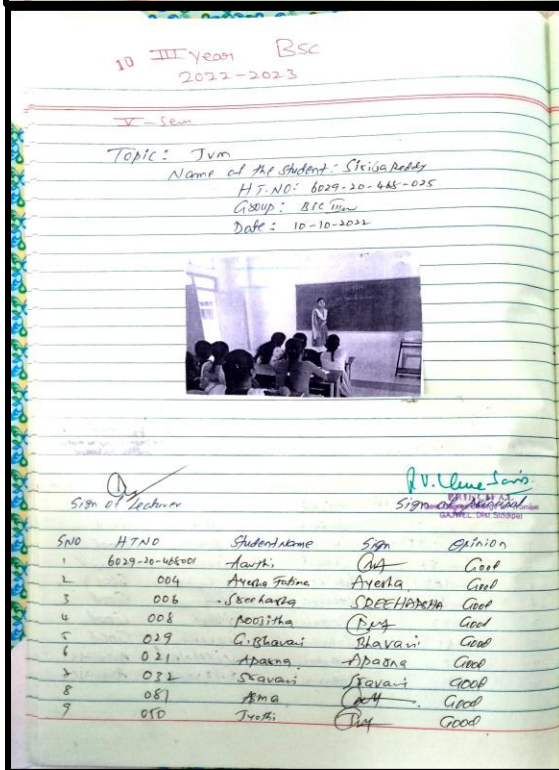 10 III year BSc
2022-2023
V-Sem
Topic: Jvm
Name of the student: Sirisha Reddy
HT.NO: 6029-20-468-025
Group: BSC III
Date: 10-10-2022
Sign of Lecturer
Sign of Principal
PRINCIPAL
GAJWEL, Dist. Siddipet
SNO HTNO Student Name Sign Opinion
1 6029-20-468001 Aarthi Good
2 004 Ayesha Fatima Ayesha Good
3 006 Sreeharsha SREEHARSHA Good
4 008 Poojitha Good
5 029 G.Bhavani Bhavani Good
6 021. Aparna Aparna Good
7 032 Sravani Sravani Good
8 081 Asma Good
9 050 Jyothi Good